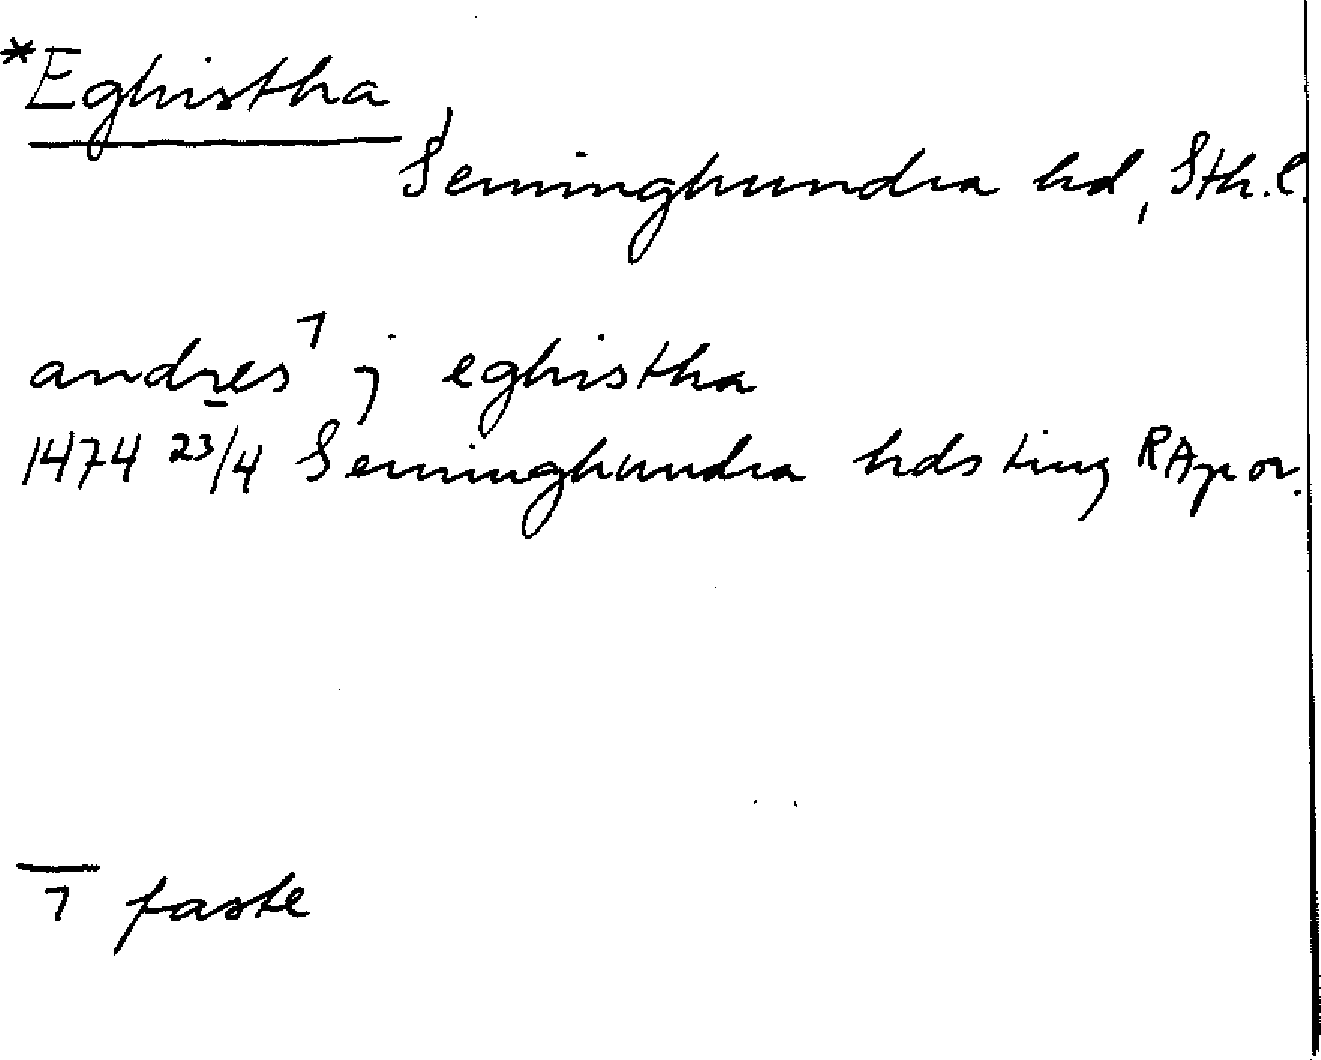 *Eghistha
Seminghundra hd, Sth. l.
andres ⁊ j eghistha
1474 23/4 Seminghundra hds ting RAp or.
⁊ faste